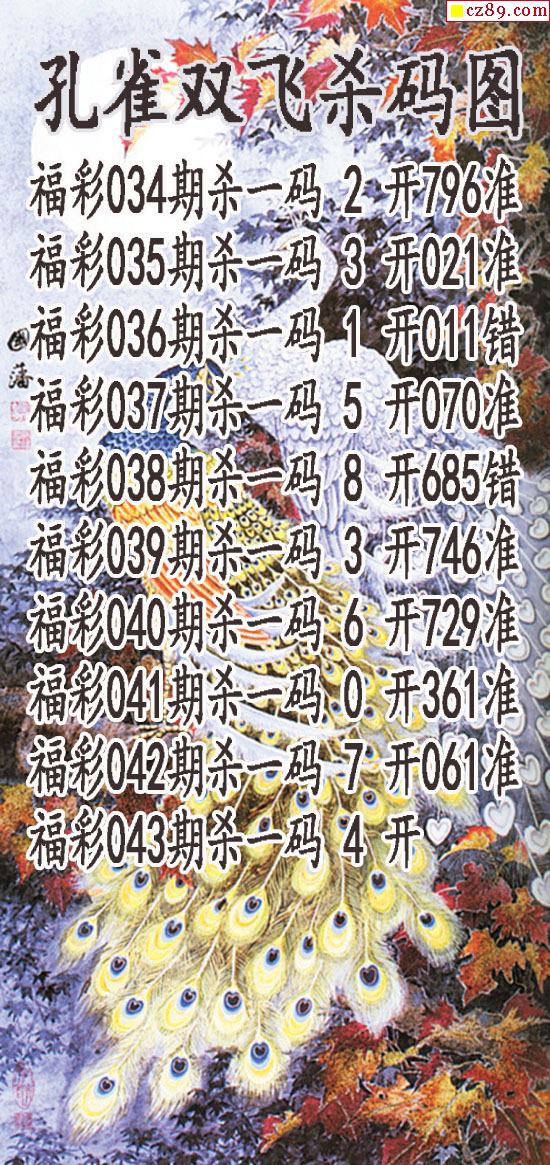 cz89.com
孔雀双飞杀码图
福彩034期杀一码 2 开796准
福彩035期杀一码 3 开021准
福彩036期杀一码 1 开011错
福彩037期杀一码 5 开070准
福彩038期杀一码 8 开685错
福彩039期杀一码 3 开746准
福彩040期杀一码 6 开729准
福彩041期杀一码 0 开361准
福彩042期杀一码 7 开061准
福彩043期杀一码 4 开
國藩